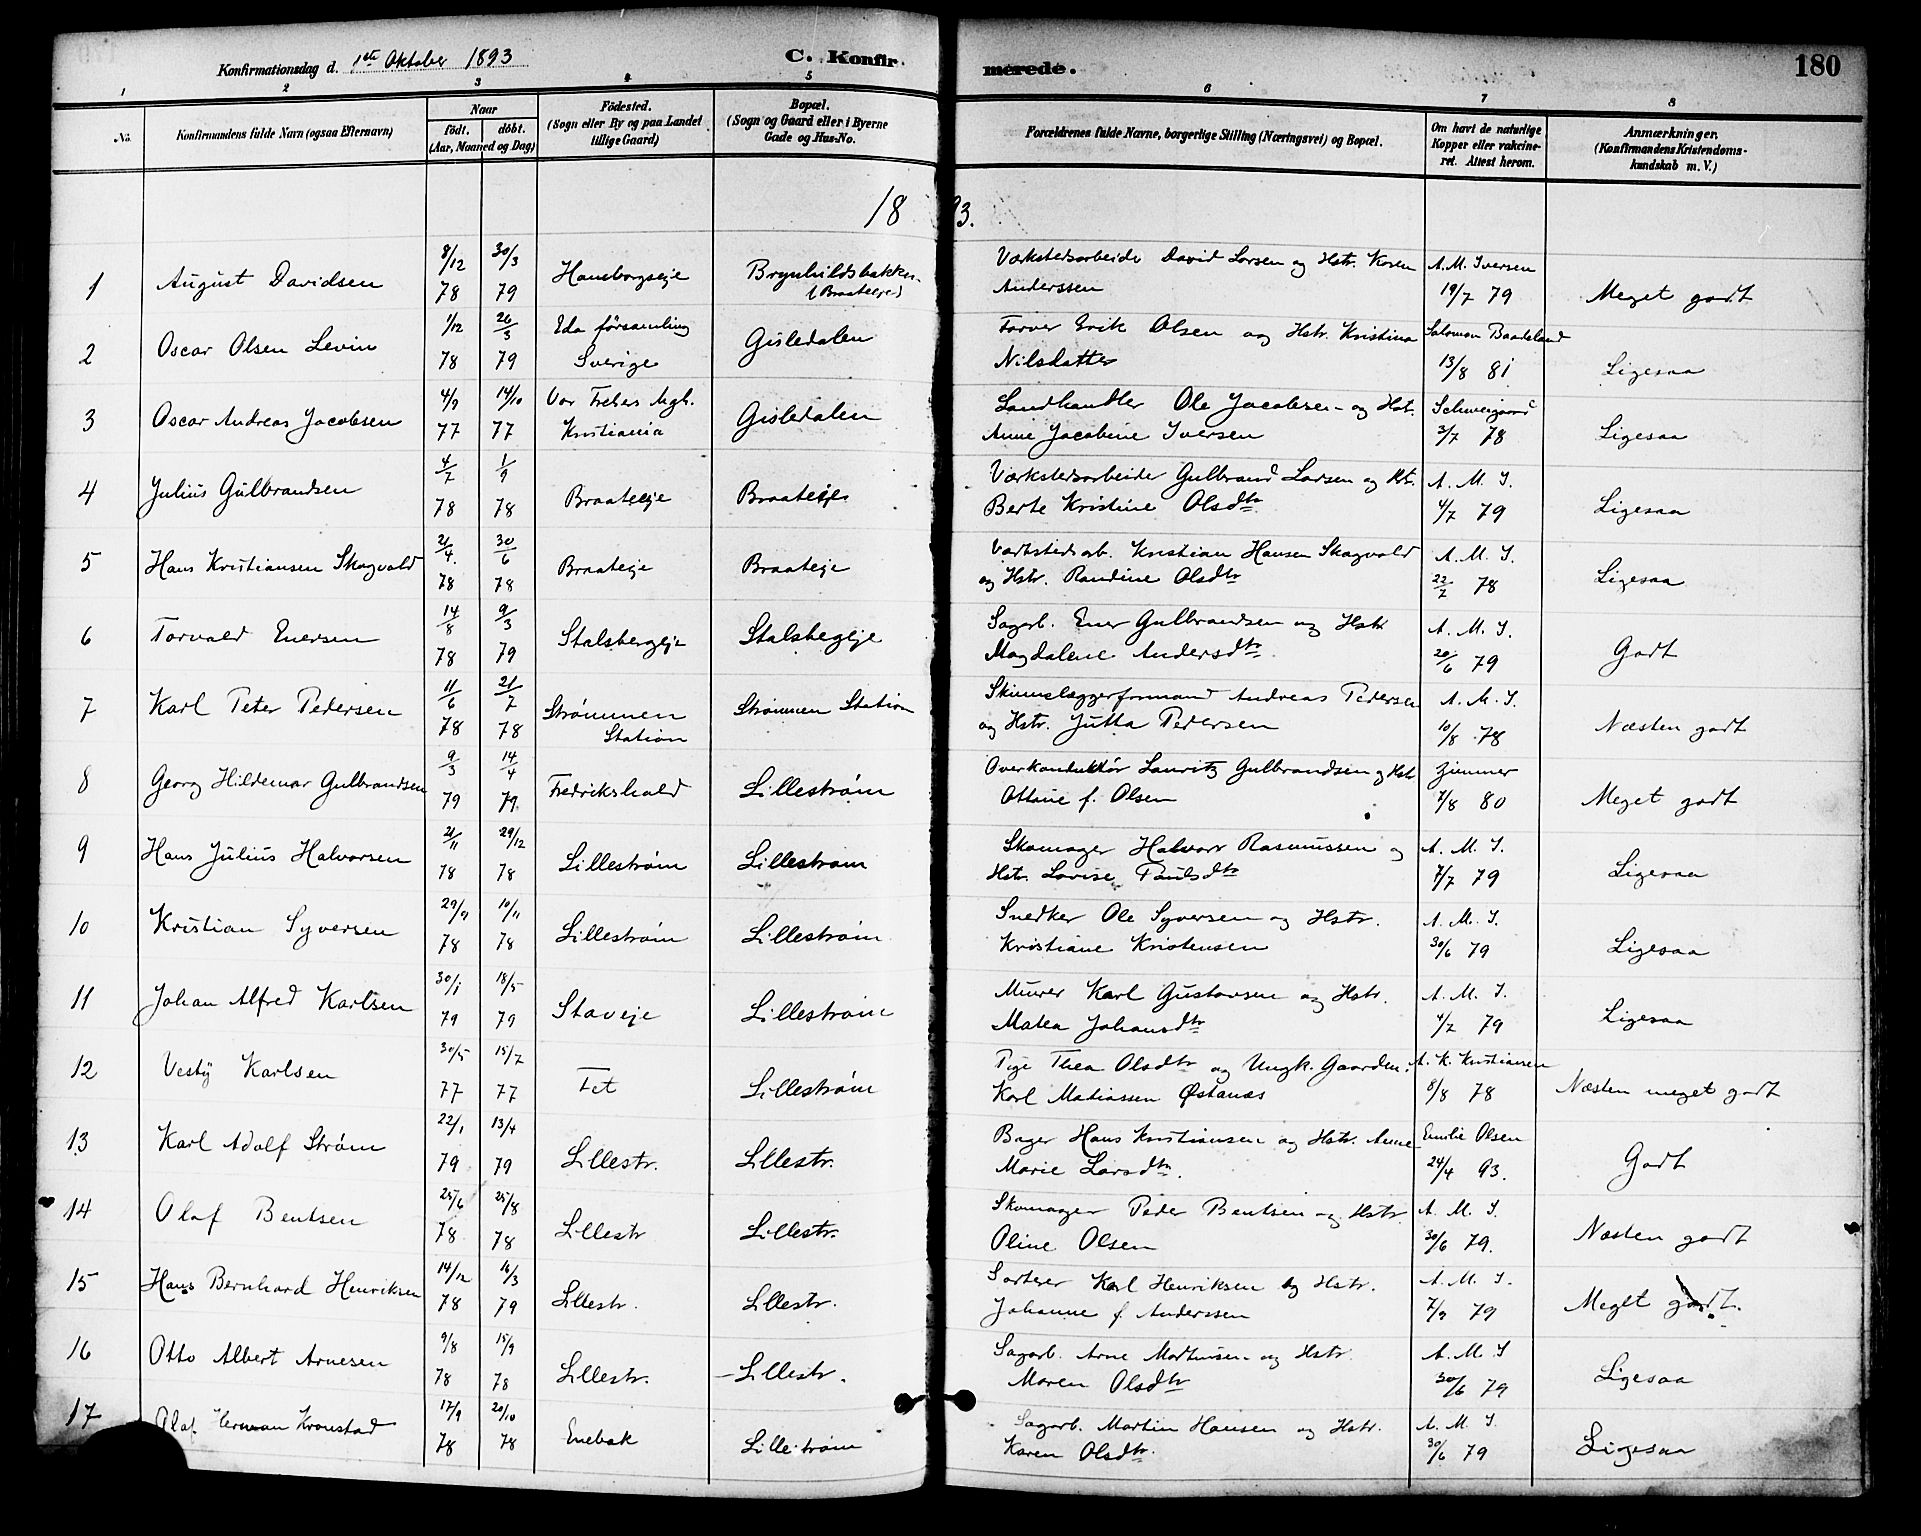 Konfirmationsdag d. 1ste Oktober 1893
C. Konfirmerede.
180
1 2 3 4 5 6 7 8
No.
Konfirmandens fulde Navn (ogsaa Efternavn)
Naar
födt. döbt.
(Aar, Maaned og Dag)
Födested.
(Sogn eller By og paa Landet
tillige Gaard)
Bopæl.
(Sogn og Gaard eller i Byerne
Gade og Hus-No.
Forældrenes fulde Navne, borgerlige Stilling (Næringsvei) og Bopæl.
Om havt de naturlige
Kopper eller vakcine-
ret. Attest herom.
Anmærkninger.
(Konfirmandens Kristendoms-
kundskab m. V.)
1893.
1 August Davidsen 8/12 78 30/3 79 Hansborgseje Brynhildsbakken (Braateeje)
Værkstedsarbeide David Larsen og Hstr. Karen
Anderssen
A. M. Iversen 19/7 79 Meget godt
2 Oscar Olsen Levin 1/12 78 26/3 79 Eda församling Sverige Gisledalen
Farver Erik Olsen og Hstr. Kristina
Nilsdatter
Salomon Baadeland 13/8 81 Ligesaa
3 Oscar Andreas Jacobsen 4/9 77 14/10 77 Vor Frelsers Mgh. Kristiania Gisledalen
Landhandler Ole Jacobsen og Hst.
Anne Jacobine Iversen
Schweigaard 3/7 78 Ligesaa
4 Julius Gulbrandsen 4/7 78 1/9 78 Braateeje Braateeje
Værkstedsarbeider Gulbrand Larsen og Hst.
Berte Kristine Olsdtr
A. M. I. 4/7 79 Ligesaa
5 Hans Kristiansen Skogvold 21/4. 78 30/6 78 Braateeje Braateje
Værkstedsarb. Kristian Hansen Skogvold
og Hstr. Randine Olsdtr
A. M. I. 22/7 78 Ligesaa
6 Torvald Enersen 14/8 78 9/3 79 Stalsbergeje Stalsbegeje
Sagarb. Ener Gulbrandsen og Hstr
Magdalene Andersdtr.
A. M. I. 20/6 79 Godt
7 Karl Peter Pedersen 11/6 78 21/7 78 Strømmen Station Strømmen Station
Skinnelæggerformand Andreas Pedersen
og Hstr. Jutta Pedersen
A. M. I. 10/8 78 Næsten godt
8 Georg Hildemar Gulbrandsen 9/3 79 14/4 79. Fredrikshald Lillestrøm
Overkonduktør Lauritz Gulbrandsen og Hstr
Ottine f. Olsen
Zimmer 7/8 80 Meget godt
9 Hans Julius Halvorsen 21/11 78 29/12 78 Lillestrøm Lillestrøm
Skomager Halvor Rasmussen og
Hstr. Lovise Paulsdtr
A. M. I. 7/7 79 Ligesaa
10 Kristian Syversen 29/9 78 10/11 78 Lillestrøm Lillestrøm
Snedker Ole Syversen og Hstr.
Kristiane Kristensen
A. M. I. 30/6 79 Ligesaa
11 Johan Alfred Karlsen 30/1 79 18/5 79 Staveje Lillestrøm
Murer Karl Gustavsen og Hstr.
Matea Johansdtr
A. M. I. 4/7 79 Ligesaa
12 Vestij Karlsen 30/5 77 15/7 77 Fet Lillestrøm
Pige Thea Olsdtr og Ungk. Gaarden.
Karl Matiassen Østanæs
A. K. Kristiansen 8/8 78 Næsten meget godt
13 Karl Adolf Strøm 22/1 79 13/4 79 Lillestr. Lillestr.
Bager Hans Kristiansen og Hstr. Anne
Marie Larsdtr.
Emilie Olsen 24/4 93. Godt
14 Olaf Bentsen 25/6 78 25/8 78 Lillestr Lillestr.
Skomager Peder Bentsen og Hstr.
Oline Olsen
A. M. I. 30/6 79. Næsten godt
15 Hans Bernhard Henriksen 14/12 78 16/3 79 Lillestr. Lillestr.
Sorterer Karl Henriksen og Hstr.
Johanne f. Anderssen
A. M. I. 7/9 79 Meget godt.
16 Otto Albert Arnesen 9/8 78 15/9 78 Lillestr. Lillestr.
Sagarb. Arne Mortinsen og Hstr.
Maren Olsdtr
A. M. I 30/6 79 Ligesaa
17 Olaf Herman Kronstad 17/9 78 20/10 78 Enebak Lillestrøm
Sagarb. Martin Hansen og Hstr.
Karen Olsdtr.
A. M. I. 30/6 79 Ligesaa